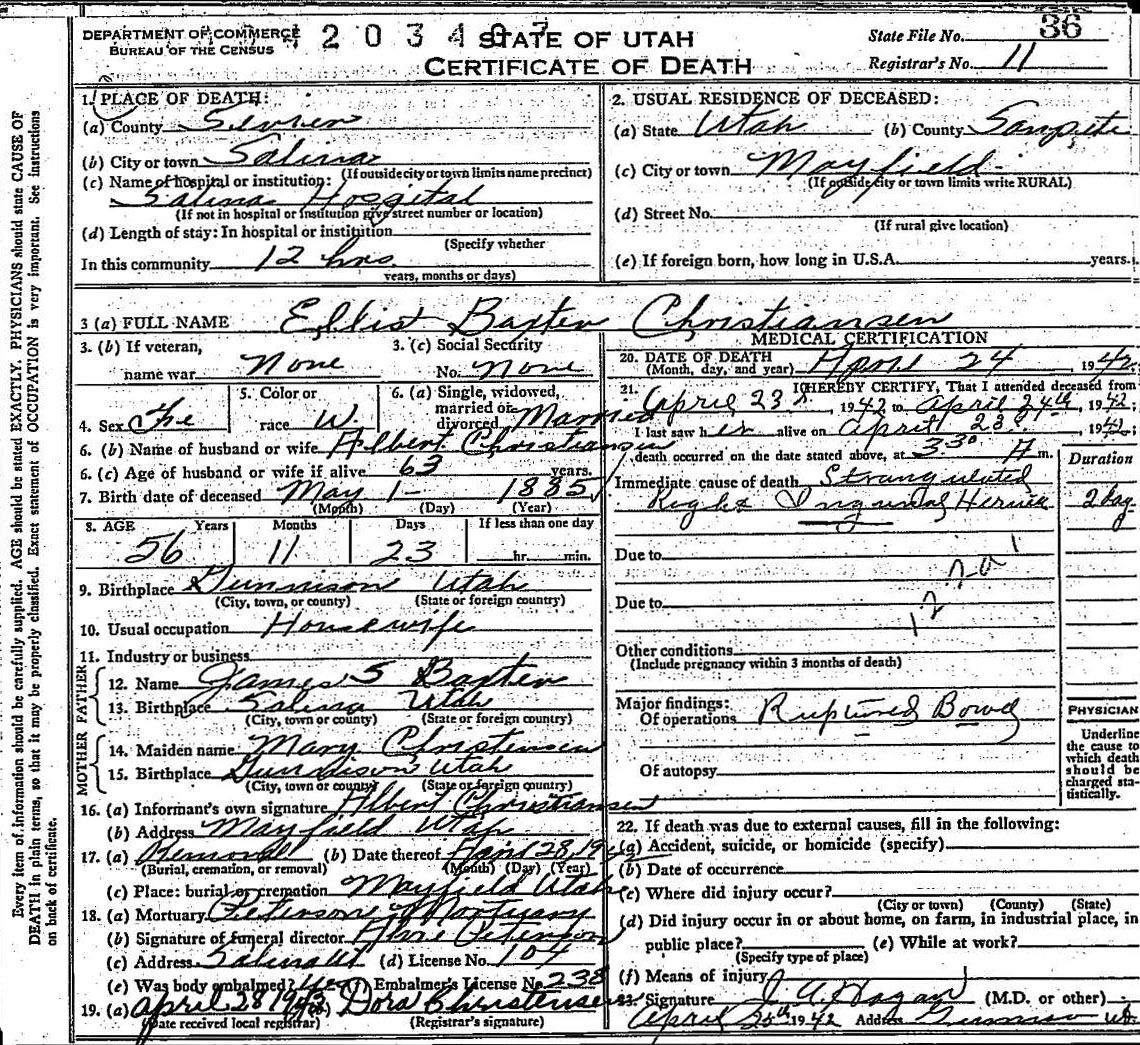 DEPARTMENT OF COMMERCE
BUREAU OF THE CENSUS
4 2 0 3 4 0 7
STATE OF UTAH
CERTIFICATE OF DEATH
State File No. 36
Registrar's No. 11
1. PLACE OF DEATH:
(a) County Sevier
(b) City or town Salina
(If outside city or town limits name precinct)
(c) Name of hospital or institution:
Salina Hospital
(If not in hospital or institution give street number or location)
(d) Length of stay: In hospital or institution
(Specify whether
In this community 12 hrs
years, months or days)
2. USUAL RESIDENCE OF DECEASED:
(a) State Utah (b) County Sanpete
(c) City or town Mayfield
(If outside city or town limits write RURAL)
(d) Street No.
(If rural give location)
(e) If foreign born, how long in U.S.A. years.
3 (a) FULL NAME Ellis Baxter Christiansen
3. (b) If veteran,
name war None
3. (c) Social Security
No. None
4. Sex Fe
5. Color or
race W.
6. (a) Single, widowed,
married or
divorced Married
6. (b) Name of husband or wife Albert Christiansen
6. (c) Age of husband or wife if alive 63 years.
7. Birth date of deceased May 1- 1885
(Month) (Day) (Year)
8. AGE Years Months Days If less than one day
56 11 23 hr. min.
9. Birthplace Gunnison Utah
(City, town, or county) (State or foreign country)
10. Usual occupation Housewife
11. Industry or business
FATHER
12. Name James S Baxter
13. Birthplace Salina Utah
(City, town or county) (State or foreign country)
MOTHER
14. Maiden name Mary Christensen
15. Birthplace Gunnison Utah
(City, town or county) (State or foreign country)
16. (a) Informant's own signature Albert Christiansen
(b) Address Mayfield Utah
17. (a) Removal (b) Date thereof April 28, 1942
(Burial, cremation, or removal) (Month) (Day) (Year)
(c) Place: burial or cremation Mayfield Utah
18. (a) Mortuary Petersons Mortuary
(b) Signature of funeral director Peterson
(c) Address Salina Ut (d) License No. 104
(e) Was body embalmed? Yes (f) Embalmer's License No. 238
19. (a) April 28 1942 (b) Dora Christensen
(Date received local registrar) (Registrar's signature)
MEDICAL CERTIFICATION
20. DATE OF DEATH April 24 1942.
(Month, day, and year)
21. I HEREBY CERTIFY, That I attended deceased from
April 23, 1942 to April 24th, 1942;
I last saw her alive on April 23, 1942;
death occurred on the date stated above, at 3 30 A m.
Duration
Immediate cause of death Strangulated
Right Inguinal Hernia 2 day
Due to
Due to
Other conditions
(Include pregnancy within 3 months of death)
Major findings:
Of operations Ruptured Bowel
Of autopsy
PHYSICIAN
Underline
the cause to
which death
should be
charged sta-
tistically.
22. If death was due to external causes, fill in the following:
(a) Accident, suicide, or homicide (specify)
(b) Date of occurrence
(c) Where did injury occur?
(City or town) (County) (State)
(d) Did injury occur in or about home, on farm, in industrial place, in
public place? (e) While at work?
(Specify type of place)
(f) Means of injury
23. Signature J. A. Hagan (M.D. or other)
April 25th 1942 Address Gunnison Ut.
Every item of information should be carefully supplied. AGE should be stated EXACTLY. PHYSICIANS should state CAUSE OF
DEATH in plain terms, so that it may be properly classified. Exact statement of OCCUPATION is very important. See instructions
on back of certificate.